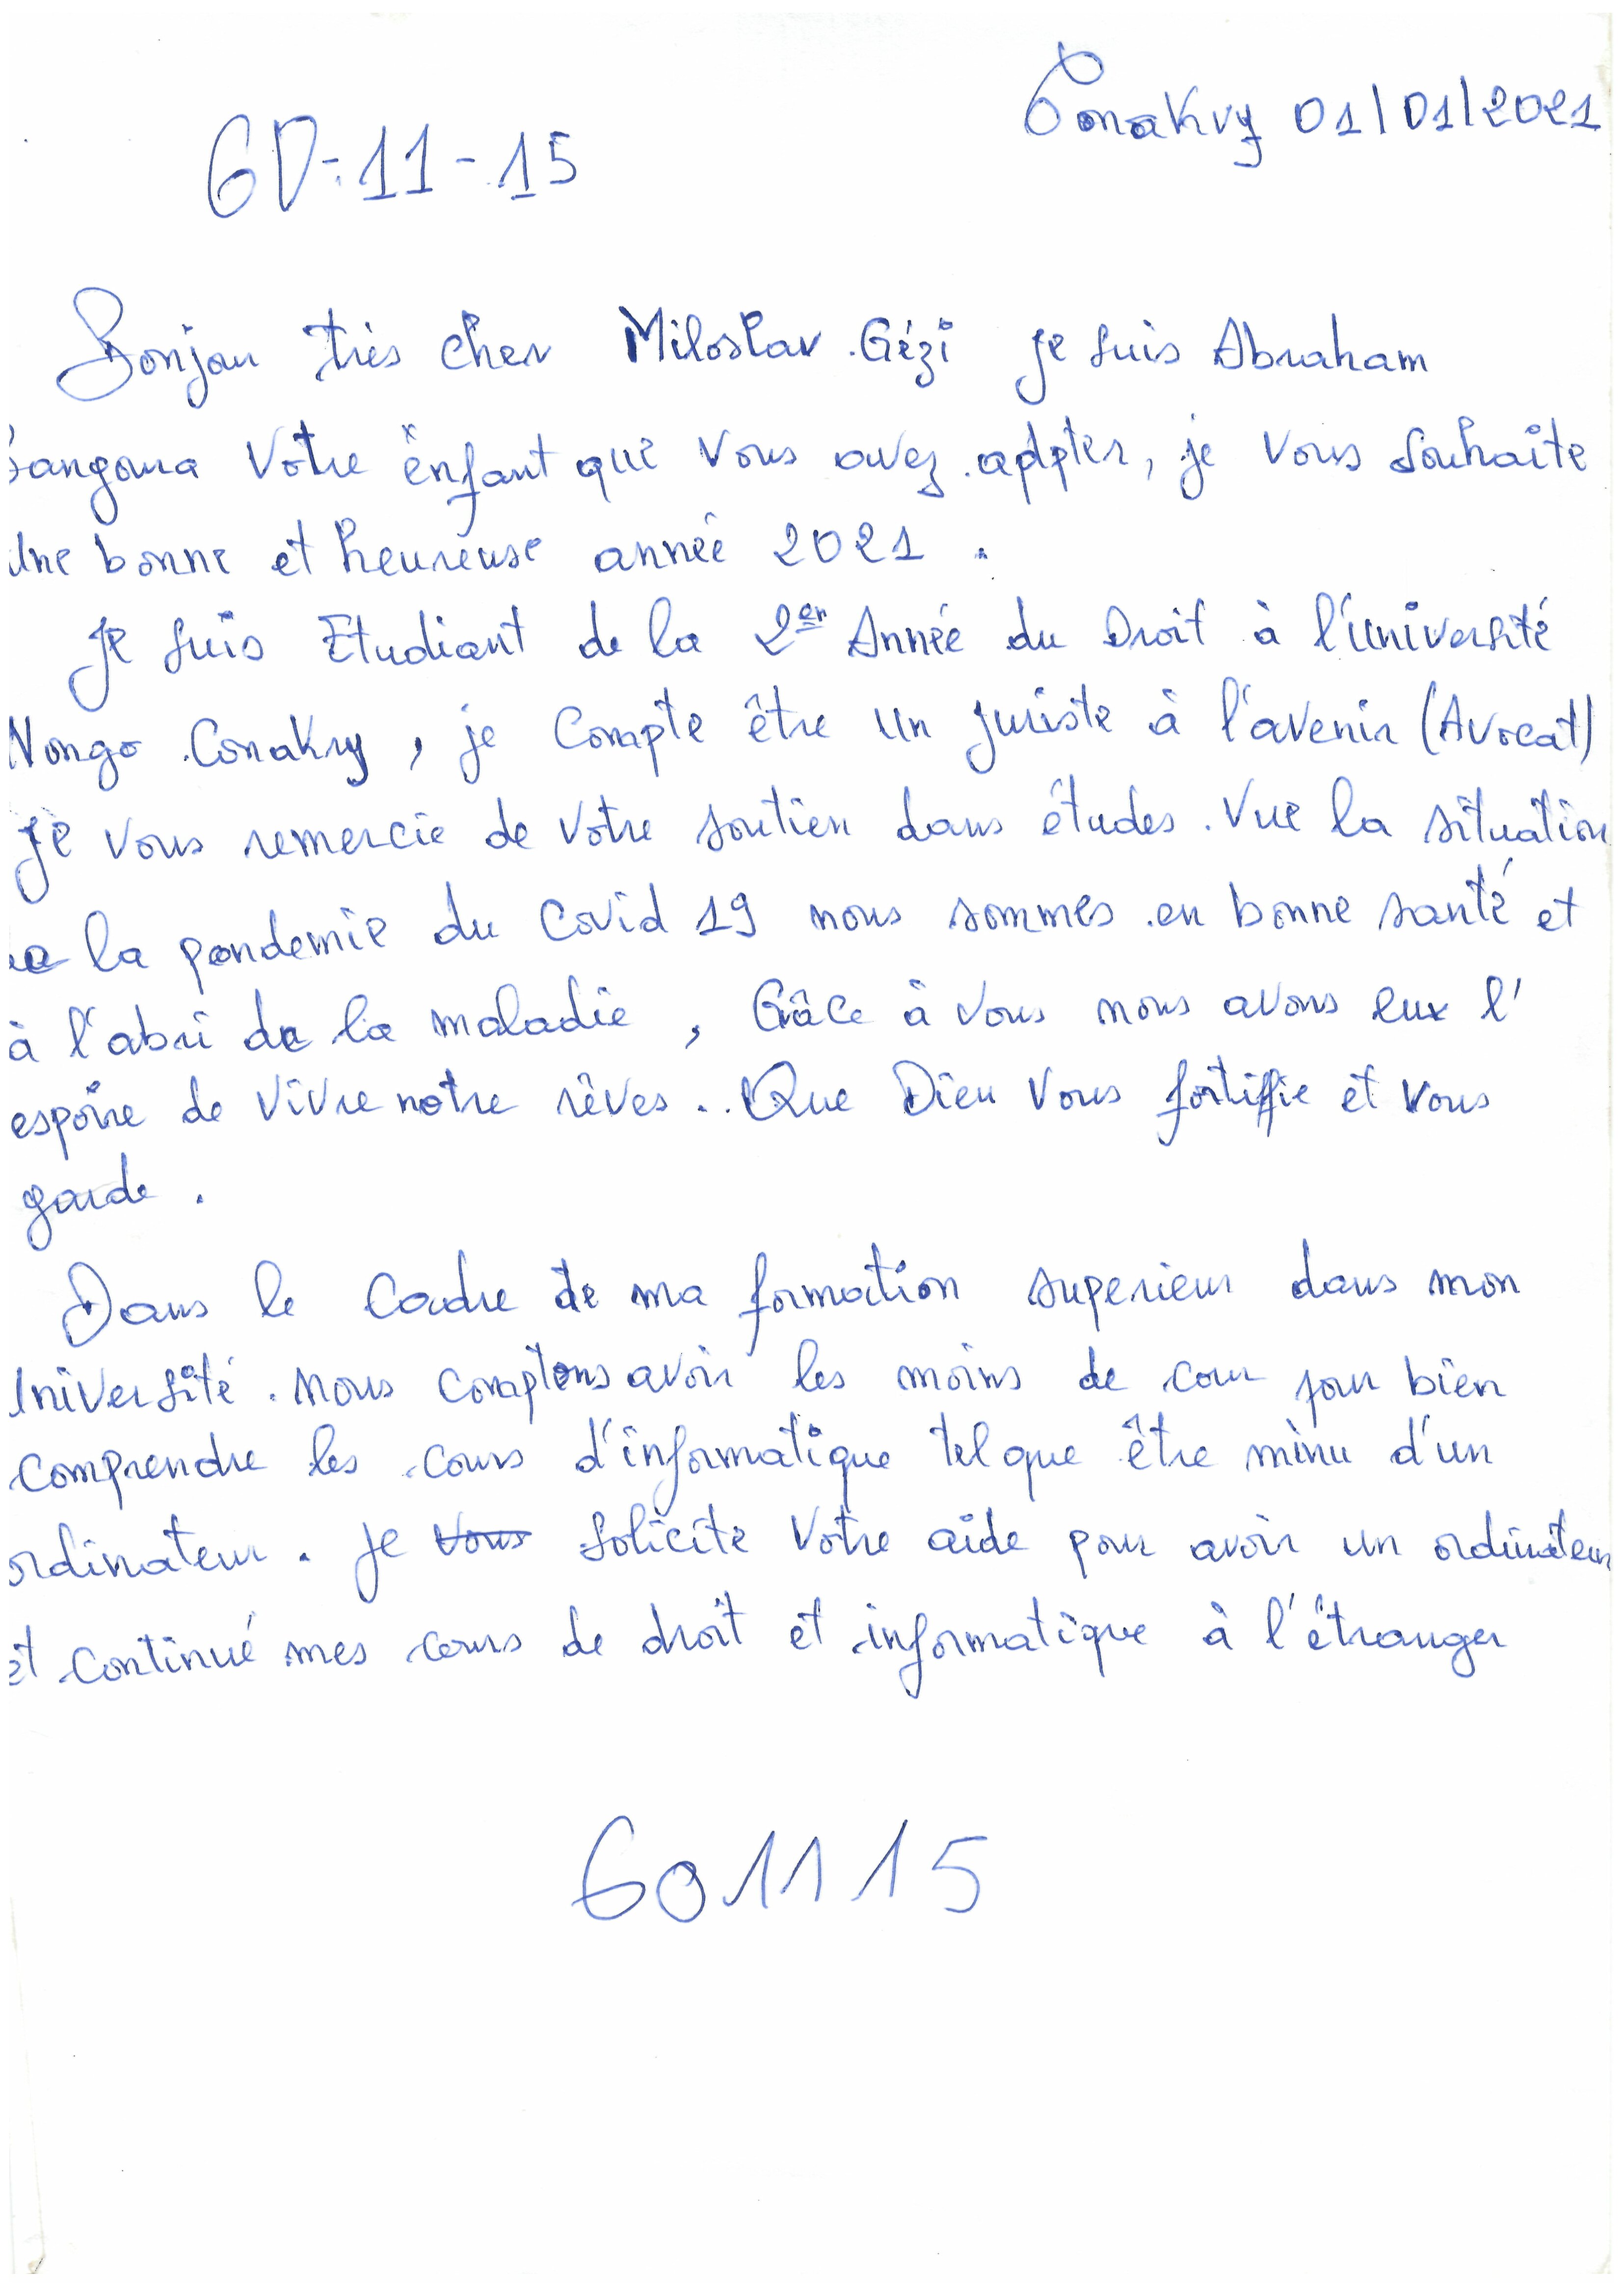 Conakry 01/01/2021
GD-11-15
Bonjou très cher Miloslav Gézi je suis Abraham
Sangoura Votre enfant que vous avez adpter, je vous souhaite
Une bonne et heureuse année 2021.
Je suis Etudiant de la 2er Année du Droit à l'université
Nongo Conakry, je compte être un juriste à l'avenir (Avocat)
je vous remercie de votre soutien dans études. Vue la situation
la pandemie du Covid 19 nous sommes en bonne santé et
à l'abri de la maladie, Grâce à vous nous avons eux l'
espoire de vivre notre rêves.. Que Dieu vous fortiffie et vous
garde.
Dans le Cadre de ma formation superieur dans mon
Université. nous comptons avoir les moins de cour pour bien
comprendre les cours d'informatique tel que être minu d'un
ordinateur. Je vous solicite votre aide pour avoir un ordinateur
et continué mes cours de droit et informatique à l'étranger
GD1115